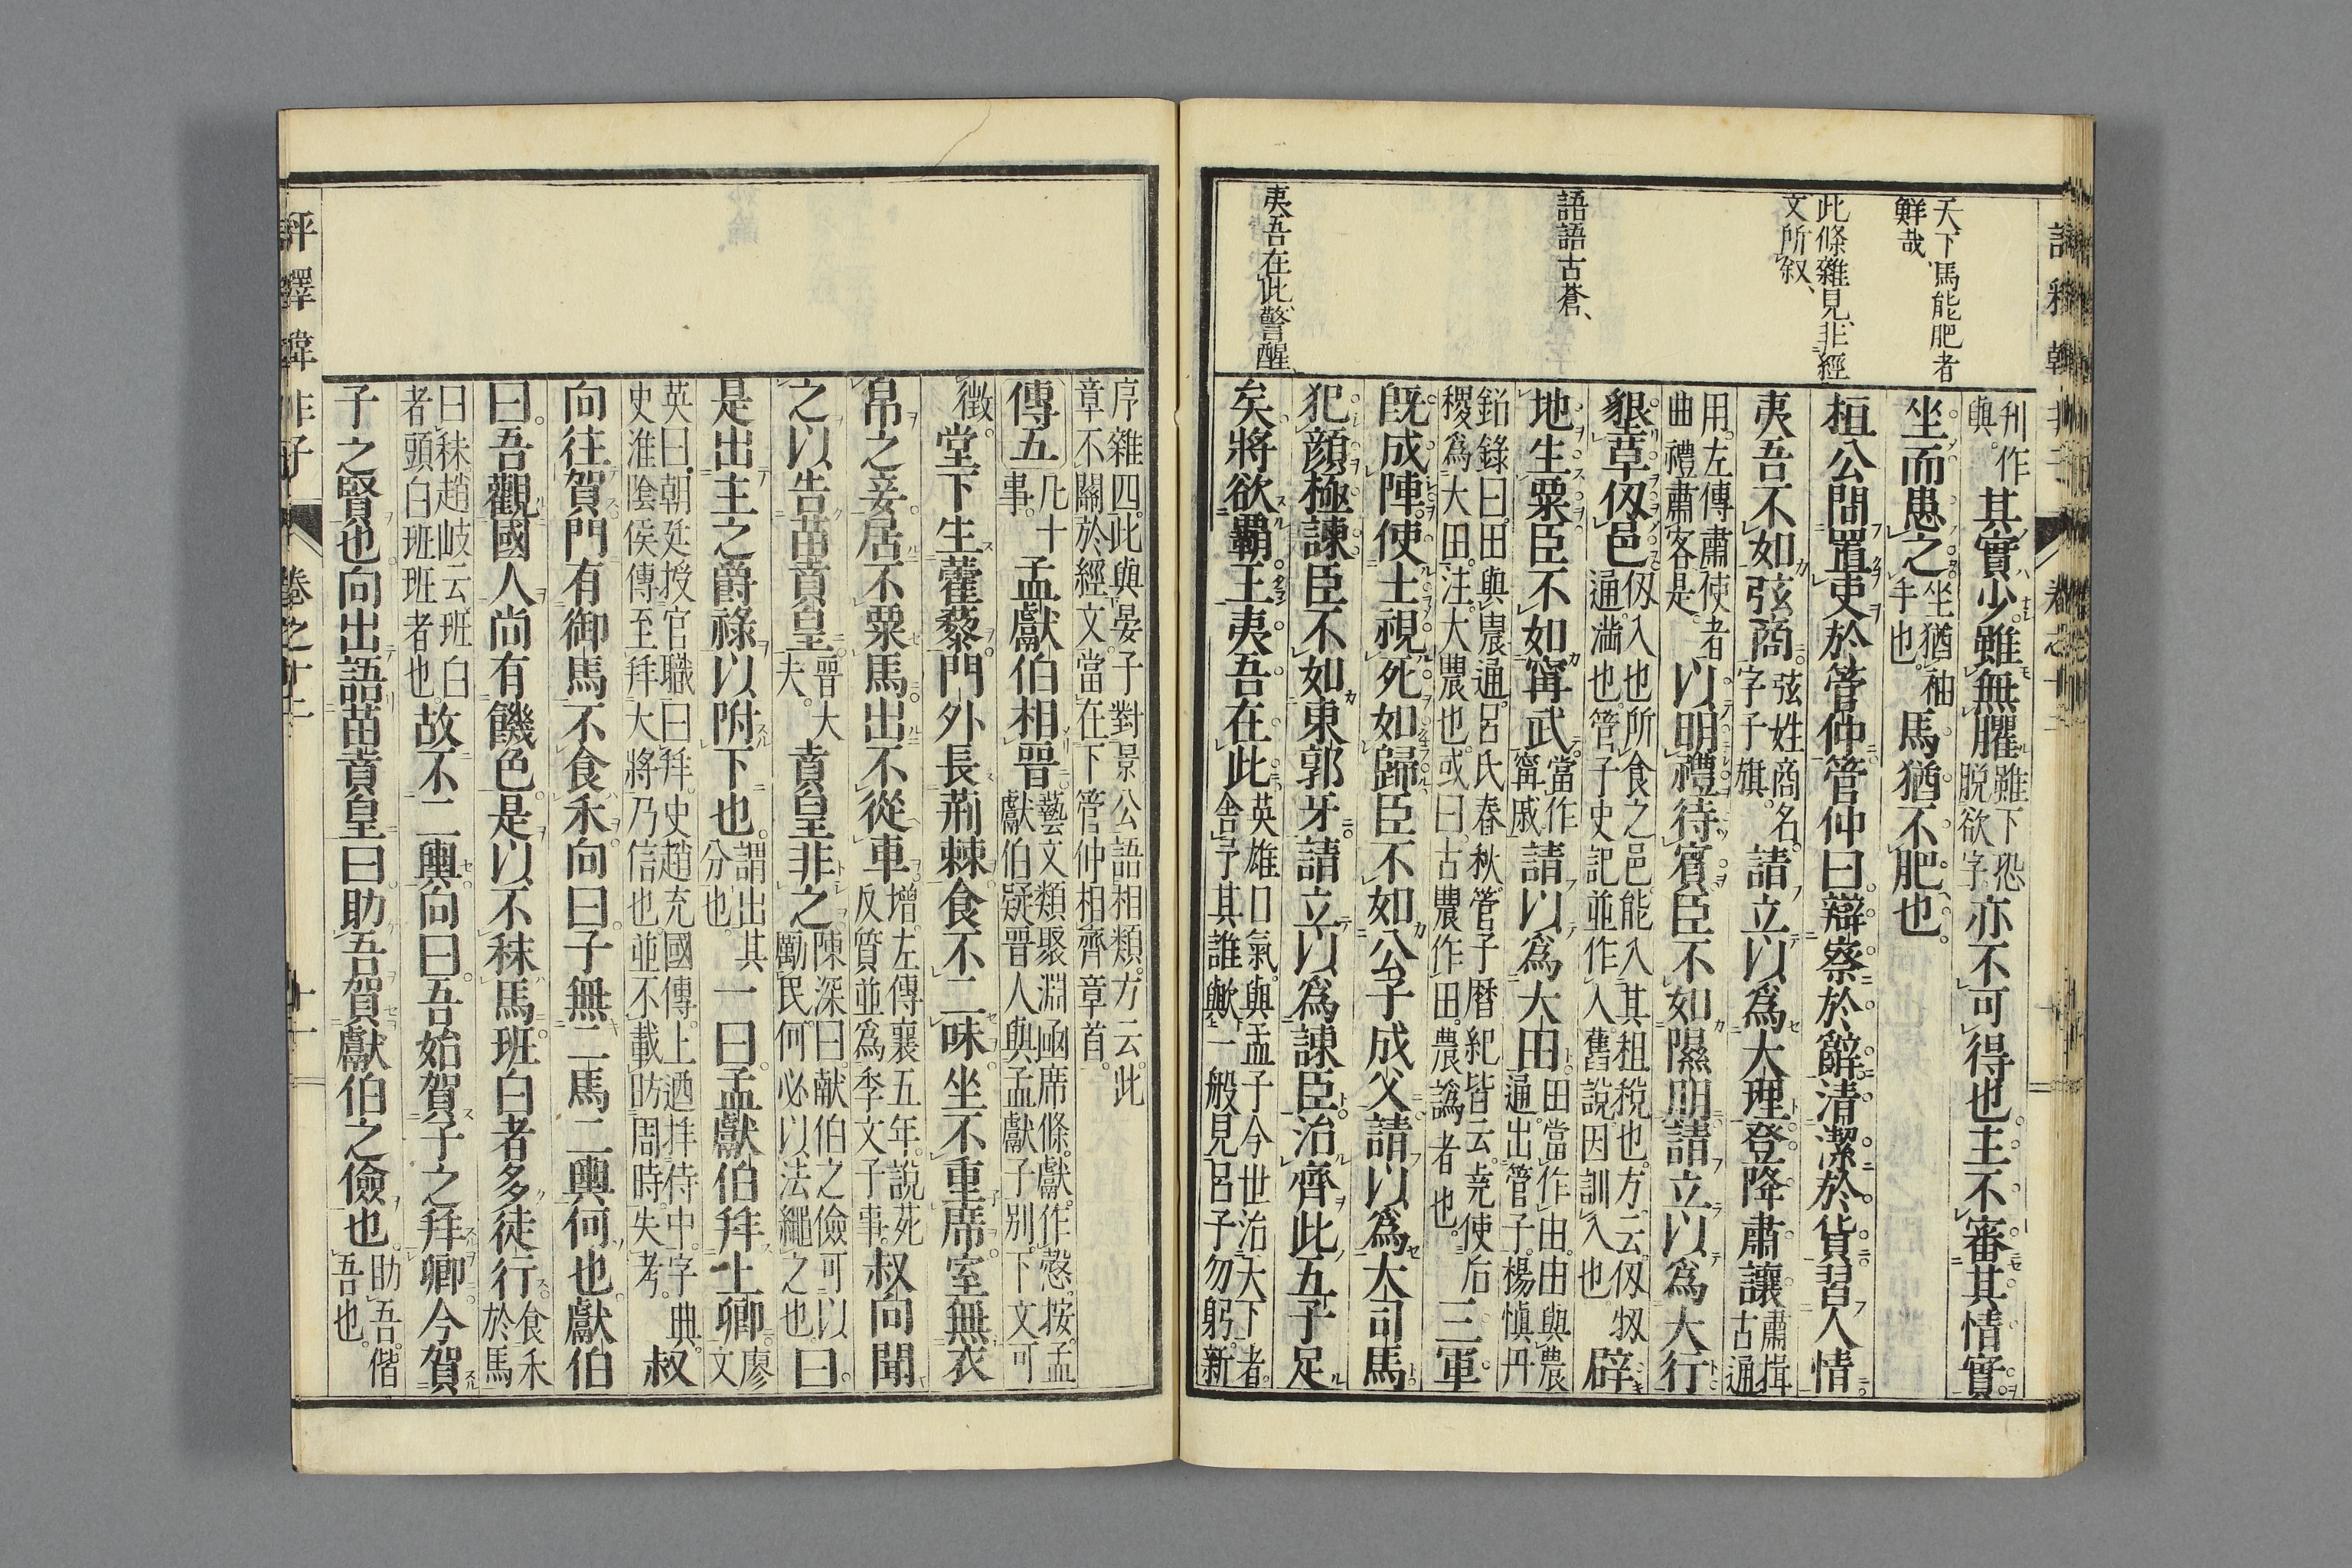 天下馬能肥者
鮮哉、
此條雜見、非經
文所叙、
語語古蒼、
夷吾在此、警醒、
刋作
與。
其實少。雖無臞
雖下恐
脱欲字
亦不可得也。主不審其情實
坐而患之
坐猶袖
手也。
馬猶不肥也。
桓公問置吏於管仲管仲曰。辯察於辭清潔於貨習人情
夷吾不如弦商
弦姓商名。
字子旗。
請立以爲大理登降肅讓
肅揖
古通
用。左傳肅使者
曲禮肅客是。
以明禮待賓臣不如隰朋請立以爲大行
墾草仭邑
仭入也所食之邑能入其租稅也。方云。仭牣
通。滿也。管子史記並作入舊說因訓入也
辟
地生粟臣不如寗武
當作
寗戚
請以爲大田
田當作由。由與農
通。出管子。楊愼丹
鉛錄曰。田與農通。呂氏春秋。管子曆紀皆云。堯使后
稷爲大田。注。大農也。或曰。古農作田。農譌者也。
三軍
既成陣。使士視死如歸臣不如公子成父請以爲大司馬
犯顔極諫臣不如東郭牙請立以爲諫臣治齊此五子足
矣將欲覇王夷吾在此
英雄口氣。與孟子今世治天下者。
舍予其誰歟一般見。呂子勿躬。新
序雜四。此與晏子對景公語相類。方云。此
章不關於經文。當在下管仲相齊章首。
傳五
凡十
事。
孟獻伯相晋
藝文類聚淵凾席條。獻。作愨。按孟
獻伯疑晋人與孟獻子別。下文可
徴。
堂下生藿藜門外長荊棘食不二味坐不重席室無衣
帛之妾居不粟馬出不從車
增。左傳襄五年。說苑
反質並爲季文子事。
叔向聞
之以告苗賁皇
晋大
夫。
賁皇非之
陳深曰。献伯之儉可以
勵民。何必以法繩之也。
曰。
是出主之爵祿以附下也。
謂出其
分也。
一曰。孟獻伯拜上卿
廖
文
英曰。朝廷授官職曰拜。史趙充國傳。上迺拝侍中。字典。
史淮陰侯傳至拜大將乃信也。並不載。昉周時。失考。
叔
向往賀門有御馬不食禾。向曰。子無二馬二輿何也。獻伯
曰。吾觀國人尚有饑色。是以不秣馬班白者多徒行。
食禾
於馬
曰秣趙岐云班白
者頭白班班者也
故不二輿。向曰。吾始賀子之拜卿。今賀
子之賢也向出語苗賁皇曰。助吾賀獻伯之儉也。
助吾。偕
吾也。
評釋韓非子 卷之十二 十一